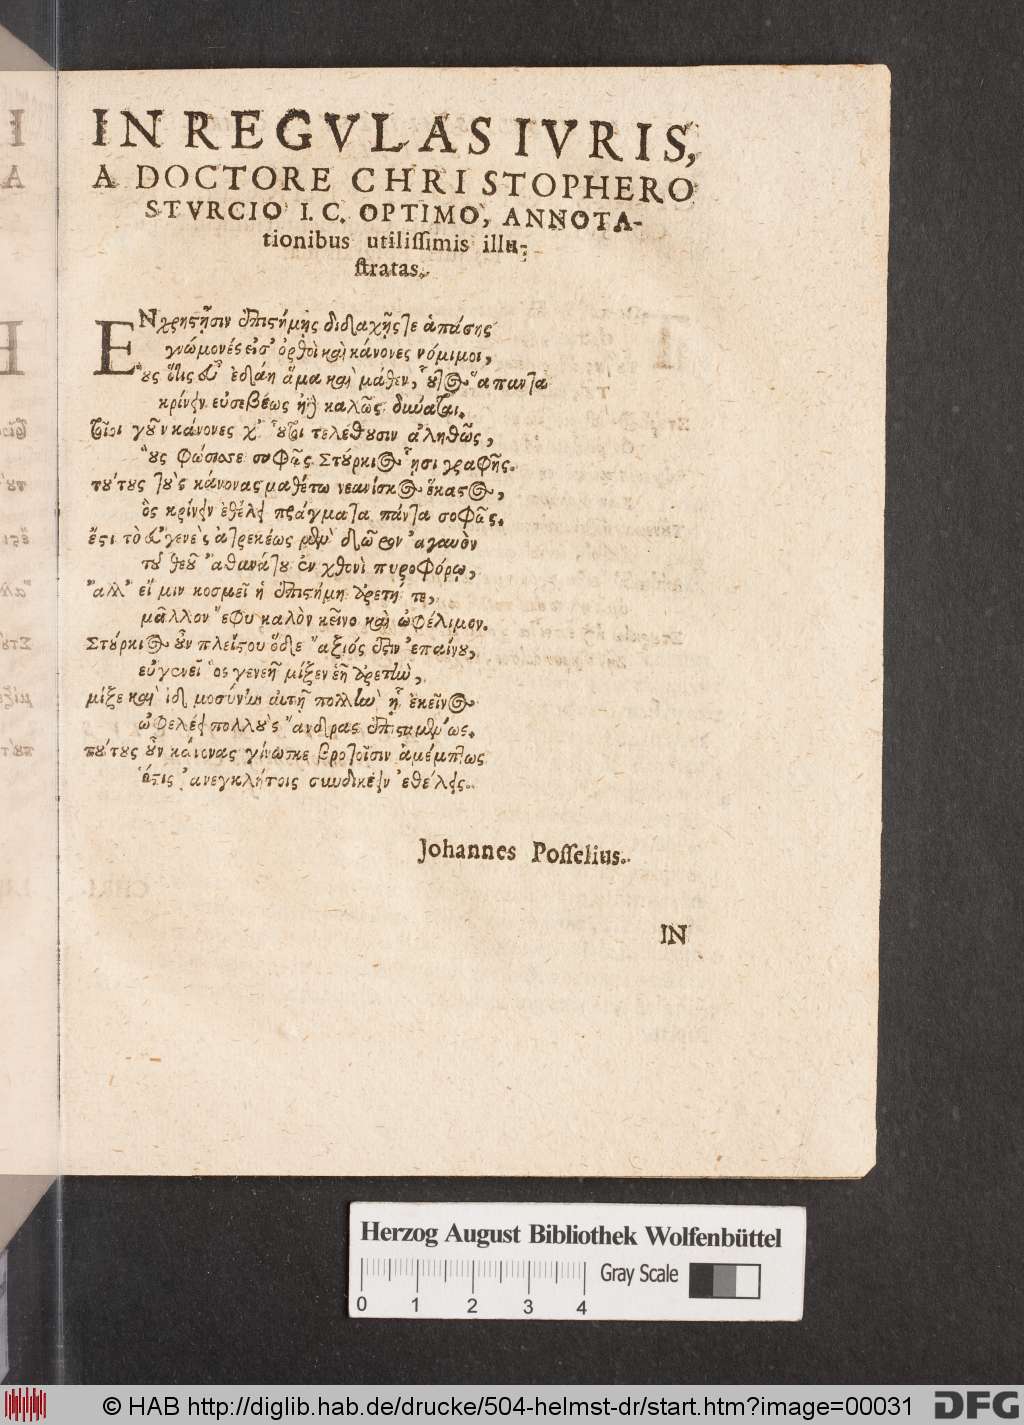 IN REGVLAS IVRIS,
A DOCTORE CHRISTOPHERO
STVRCIO I. C. OPTIMO, ANNOTA-
tionibus utilissimis illu-
stratas.
ΕΝ χρηστῇσιν ἐπιστήμῃς διδαχῇς τε ἁπάσης
γνώμονές εἰσ' ὀρθοὶ καὶ κάνονες νόμιμοι,
οὓς ὅστις δ' ἐδάη ἅμα καὶ μάθεν, οὗτος ἅπαντα
κρίνειν εὐσεβέως ἠδὲ καλῶς δύναται.
τοῖοι γοῦν κάνονες χ' οὗτοι τελέθουσιν ἀληθῶς,
οὓς σοφῶς Στύρκιος ᾗσι γραφῇς.
τούτους τοὺς κάνονας μαθέτω νεανίσκος ἕκαστος,
ὃς κρίνειν ἐθέλει πράγματα πάντα σοφῶς.
ἔστι τὸ δ' γενεὶς ἀτρεκέως μὲν δῶρον ἀγαυὸν
τοῦ θεοῦ ἀθανάτου ἐν χθονὶ πυροφόρῳ,
ἀλλ' εἴ μιν κοσμεῖ ἡ ἐπιστήμη ἀρετή τε,
μᾶλλον ἔφυ καλὸν κεῖνο καὶ ὠφέλιμον.
Στύρκιος οὖν πλείστου ὅδε ἄξιός ἐστιν ἐπαίνου,
εὐγενεῖ ὃς γενεῇ μίξεν ἑῇ ἀρετὴν,
μίξε καὶ ἰδμοσύνην αὐτῇ πολλὴν ᾗ ἐκεῖνος
ὠφελέει πολλοὺς ἄνδρας ἐπισταμένως.
τούτους οὖν κάνονας γίνωσκε βροτοῖσιν ἀμέμπτως
ὅστις ἀνεγκλήτοις συνδικέειν ἐθέλεις.
Johannes Posselius.
IN
Herzog August Bibliothek Wolfenbüttel
Gray Scale
0 1 2 3 4
© HAB http://diglib.hab.de/drucke/504-helmst-dr/start.htm?image=00031
DFG